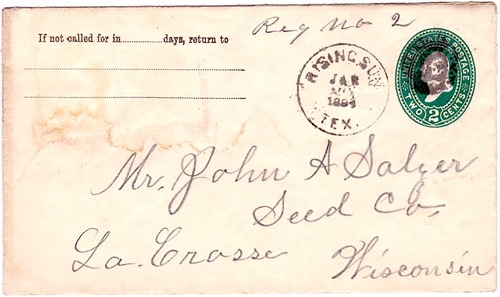 If not called for in............days, return to
Reg No 2
RISING SUN
JAN
1894
TEX.
UNITED STATES POSTAGE
TWO 2 CENTS
Mr. John A Salzer
Seed Co.
La Crosse
Wisconsin